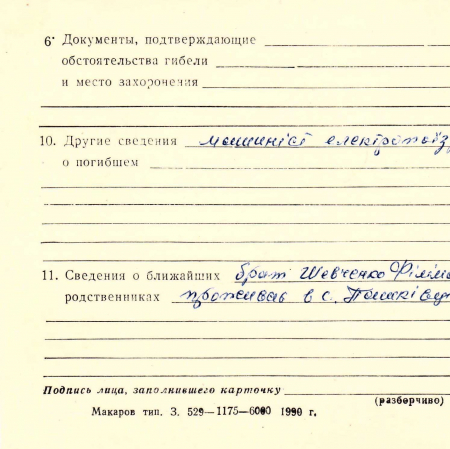 6. Документы, подтверждающие
обстоятельства гибели
и место захоронения
10. Другие сведения машиніст електропоїз
о погибшем
11. Сведения о ближайших брат Шевченко Філімо
родственниках проживав в с.
Подпись лица, заполнившего карточку
(разборчиво)
Макаров тип. З. 529—1175—6000 1990 г.